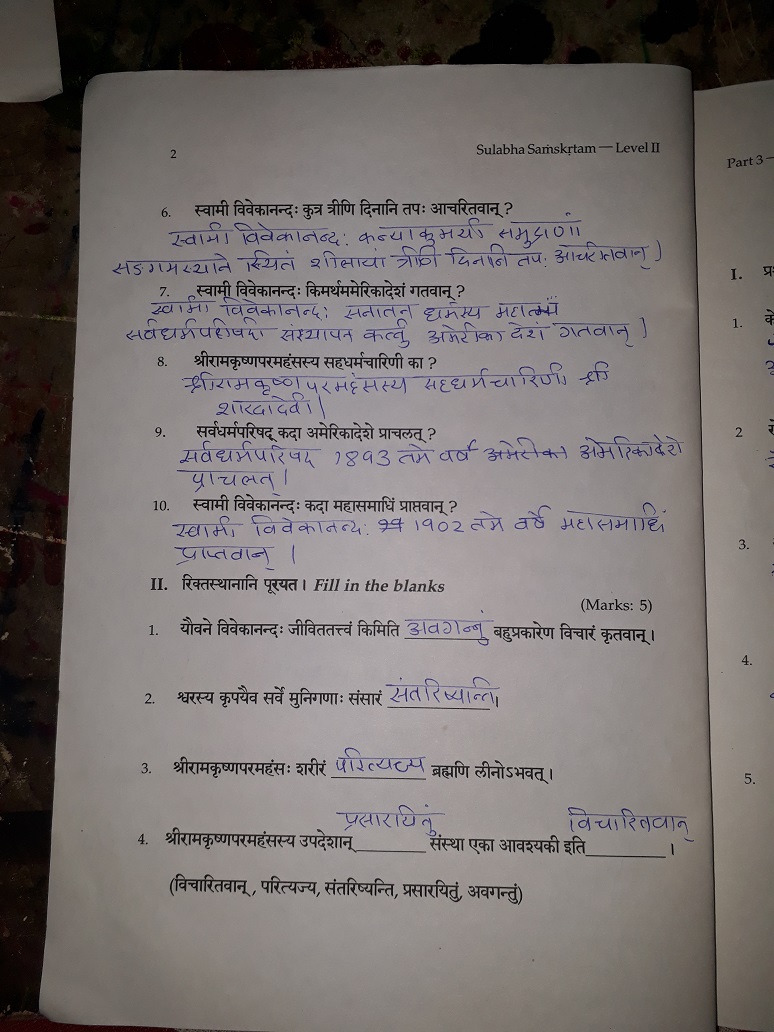 2
Sulabha Saṁskṛtam — Level II
Part 3 —
6. स्वामी विवेकानन्दः कुत्र त्रीणि दिनानि तपः आचरितवान् ?
स्वामी विवेकानन्दः कन्याकुमर्यां समुद्राणां
सङगमस्थाने स्थितं शीलायां त्रीणि दिनानि तपः आचरितवान् ।
7. स्वामी विवेकानन्दः किमर्थममेरिकादेशं गतवान् ?
स्वामी विवेकानन्दः सनातन धर्मस्य
संस्थापन कर्तु अमेरीका देशं गतवान् ।
8. श्रीरामकृष्णपरमहंसस्य सहधर्मचारिणी का ?
श्रीरामकृष्णपरमहंसस्य सहधर्मचारिणी श्री
शारदादेवी ।
9. सर्वधर्मपरिषद् कदा अमेरिकादेशे प्राचलत् ?
सर्वधर्मपरिषद् 1893 तमे वर्षे अमेरीका अमेरिकादेशे
प्राचलत् ।
10. स्वामी विवेकानन्दः कदा महासमाधिं प्राप्तवान् ?
स्वामी विवेकानन्दः 1902 तमे वर्षे महासमाधिं
प्राप्तवान् ।
II. रिक्तस्थानानि पूरयत । Fill in the blanks
(Marks: 5)
1. यौवने विवेकानन्दः जीविततत्त्वं किमिति अवगन्तुं बहुप्रकारेण विचारं कृतवान् ।
2. श्वरस्य कृपयैव सर्वे मुनिगणाः संसारं संतरिष्यन्ति ।
3. श्रीरामकृष्णपरमहंसः शरीरं परित्यज्य ब्रह्मणि लीनोऽभवत् ।
प्रसारयितुं विचारितवान्
4. श्रीरामकृष्णपरमहंसस्य उपदेशान्________ संस्था एका आवश्यकी इति________ ।
(विचारितवान् , परित्यज्य, संतरिष्यन्ति, प्रसारयितुं, अवगन्तुं)
I.
1.
2
3.
4.
5.